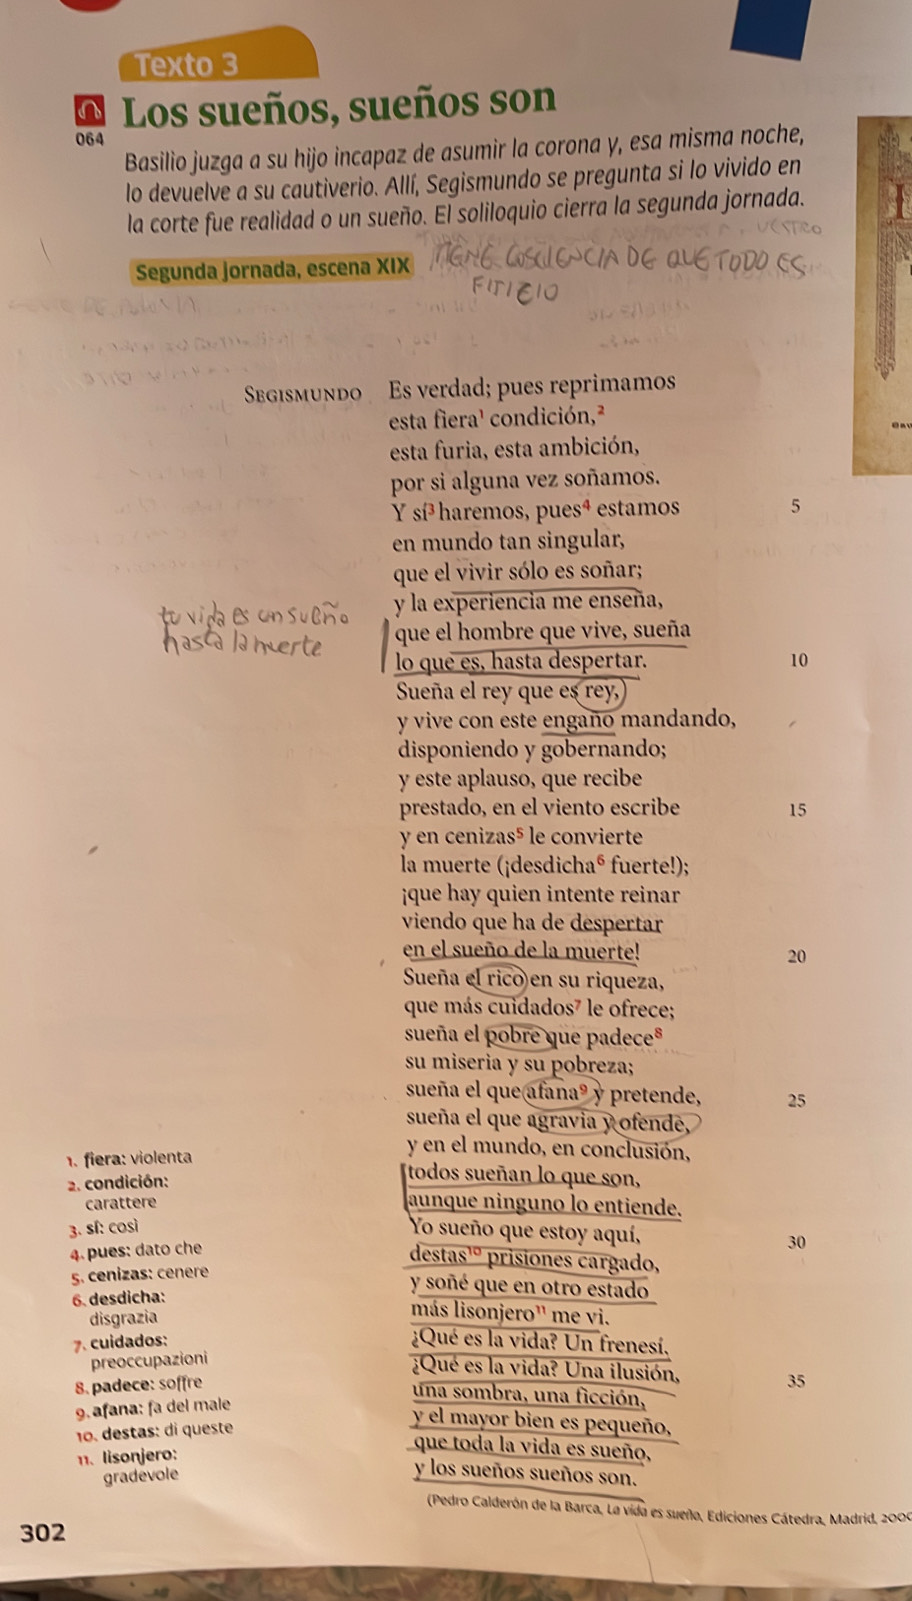 Texto 3
064
Los sueños, sueños son
Basilio juzga a su hijo incapaz de asumir la corona y, esa misma noche,
lo devuelve a su cautiverio. Allí, Segismundo se pregunta si lo vivido en
la corte fue realidad o un sueño. El soliloquio cierra la segunda jornada.
Segunda jornada, escena XIX
TIENE COSCIENCIA DE QUE TODO ES
SEGISMUNDO Es verdad; pues reprimamos
esta fiera¹ condición,²
esta furia, esta ambición,
por si alguna vez soñamos.
Y sí³ haremos, pues⁴ estamos 5
en mundo tan singular,
que el vivir sólo es soñar;
y la experiencia me enseña,
que el hombre que vive, sueña
lo que es, hasta despertar. 10
tu vida es un sueño
hasta la muerte
Sueña el rey que es rey,
y vive con este engaño mandando,
disponiendo y gobernando;
y este aplauso, que recibe
prestado, en el viento escribe 15
y en cenizas⁵ le convierte
la muerte (¡desdicha⁶ fuerte!);
¡que hay quien intente reinar
viendo que ha de despertar
en el sueño de la muerte! 20
Sueña el rico en su riqueza,
que más cuidados⁷ le ofrece;
sueña el pobre que padece⁸
su miseria y su pobreza;
sueña el que afana⁹ y pretende, 25
sueña el que agravia y ofende,
y en el mundo, en conclusión,
todos sueñan lo que son,
aunque ninguno lo entiende.
Yo sueño que estoy aquí, 30
destas¹⁰ prisiones cargado,
y soñé que en otro estado
más lisonjero¹¹ me vi.
¿Qué es la vida? Un frenesí.
¿Qué es la vida? Una ilusión, 35
una sombra, una ficción,
y el mayor bien es pequeño,
que toda la vida es sueño,
y los sueños sueños son.
(Pedro Calderón de la Barca, La vida es sueño, Ediciones Cátedra, Madrid, 200
1. fiera: violenta
2. condición:
carattere
3. sí: così
4. pues: dato che
5. cenizas: cenere
6. desdicha:
disgrazia
7. cuidados:
preoccupazioni
8. padece: soffre
9. afana: fa del male
10. destas: di queste
11. lisonjero:
gradevole
302